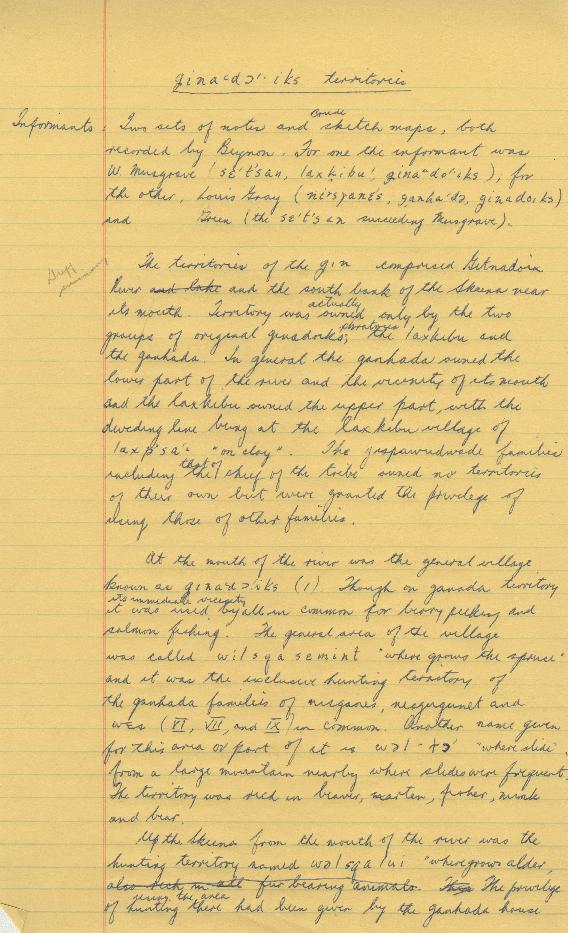 gina'dɔ'·iks territories
Informants: Two sets of notes and crude sketch maps, both
recorded by Beynon. For one the informant was
W. Musgrave (se't's'an, laxkibu', gina'do'iks), for
the other, Louis Gray (nisyanes, ganha'də, ginadoiks)
and Green (the se't's'an succeeding Musgrave).
Duff summary
The territories of the gin comprised Gitnadoix
River and lake and the south bank of the Skeena near
its mouth. Territory was actually owned only by the two
groups of original ginadoiks phratries, the laxkibu and
the ganhada. In general the ganhada owned the
lower part of the river and the vicinity of its mouth
and the laxkibu owned the upper part, with the
dividing line being at the laxkibu village of
laxp's'a'· "on clay". The gispawudwada families
including that of the chief of the tribe owned no territories
of their own but were granted the privilege of
using those of other families.
At the mouth of the river was the general village
known as gina'dɔ'iks (1). Though on ganada territory
its immediate vicinity
it was used by all in common for berry picking and
salmon fishing. The general area of the village
was called wilsgasemint "where grows the spruce"
and it was the exclusive hunting territory of
the ganhada families of nisganes, nesgegunet and
wes (VI, VII, and IX) in common. Another name given
for this area or part of it is wəl-+ɔ' "where slide"
from a large mountain nearby where slides were frequent.
The territory was rich in beaver, marten, fisher, mink
and bear.
Up the Skeena from the mouth of the river was the
hunting territory named wəlsgalui "where grows alder,
also rich in all fur bearing animals. This The privilege
using the area
of hunting there had been given by the ganhada house